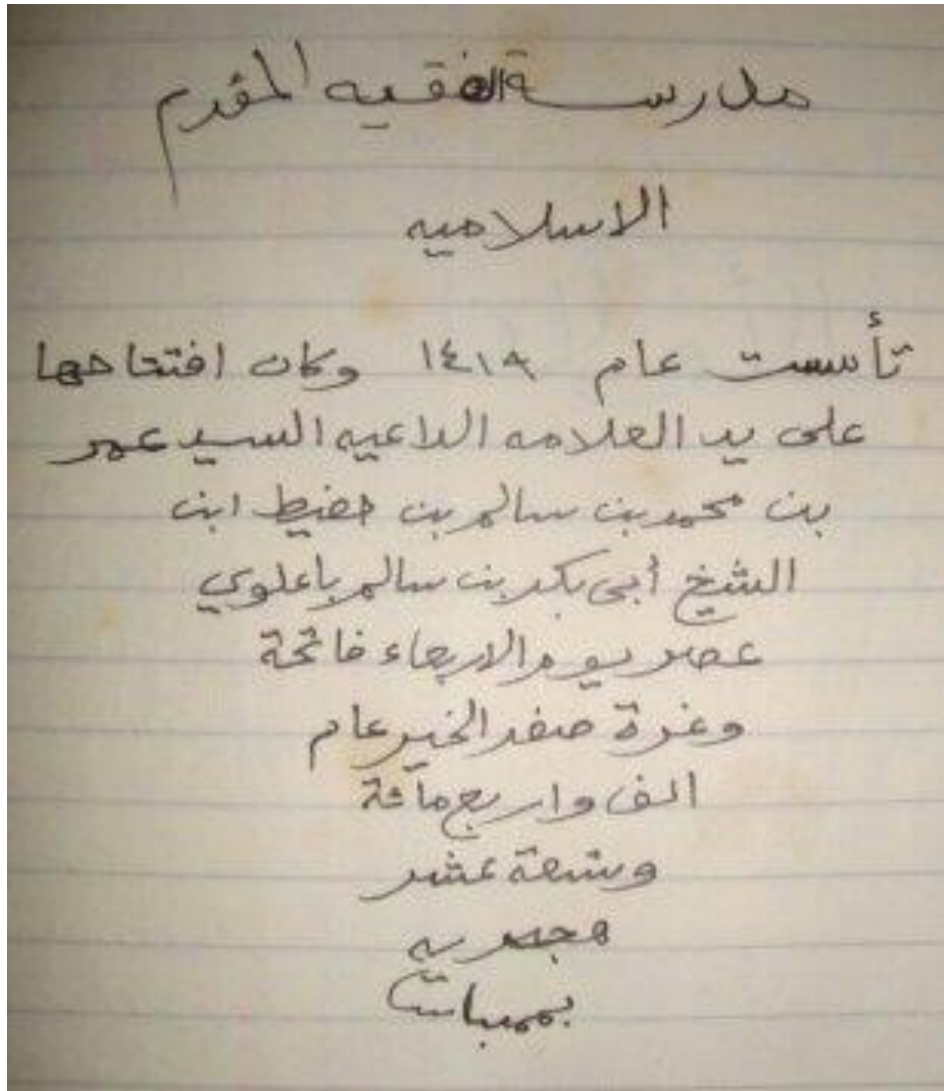 مدرسة الفقيه المقدم
الاسلاميه
تأسست عام ١٤١٩ وكان افتتاحها
على يد العلامه الداعيه السيد عمر
بن محمد بن سالم بن حفيظ ابن
الشيخ أبي بكر بن سالم باعلوي
عصر يوم الاربعاء فاتحة
وغرة صفر الخير عام
الف واربع مائة
وتسعة عشر
هجريه
بممباسا